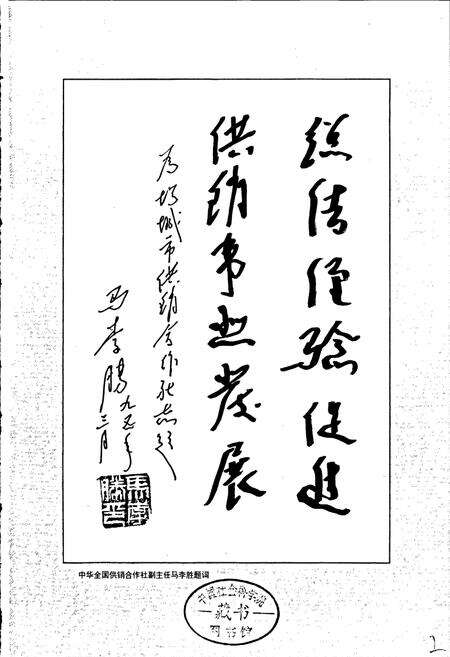 总结经验促进
供销事业发展
为城市供销合作社志题
马李胜九五年
三月
中华全国供销合作社副主任马李胜题词
中国社会科学院
藏书
图书馆